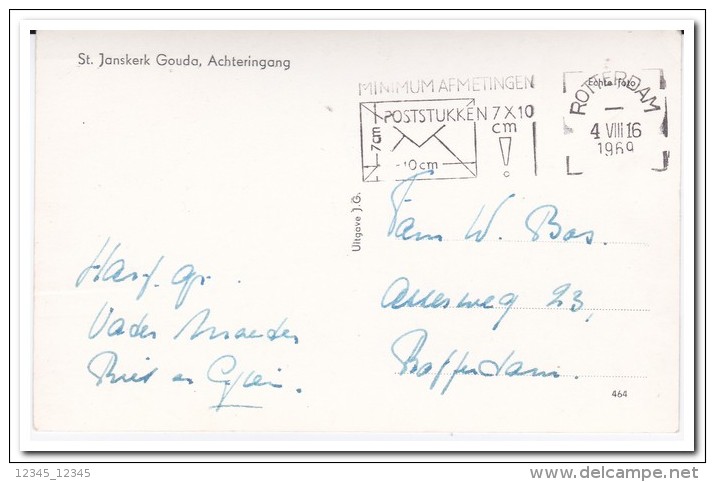 St. Janskerk Gouda, Achteringang
MINIMUM AFMETINGEN
POSTSTUKKEN 7X10
cm
7 cm
-10cm
!
Echte foto
ROTTERDAM
4 VIII 16
1969
Uitgave J.G.
Fam W. Bos.
23,
Rotterdam.
Hart. gr.
Vader Moeder
Riet en
464
12345_12345
www.delcampe.net